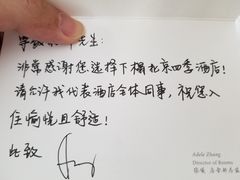 尊敬的 先生：
非常感谢您选择下榻北京四季酒店！
请允许我代表酒店全体同事，祝您入
住愉快且舒适！
此致
Adele Zhang
Director of Rooms